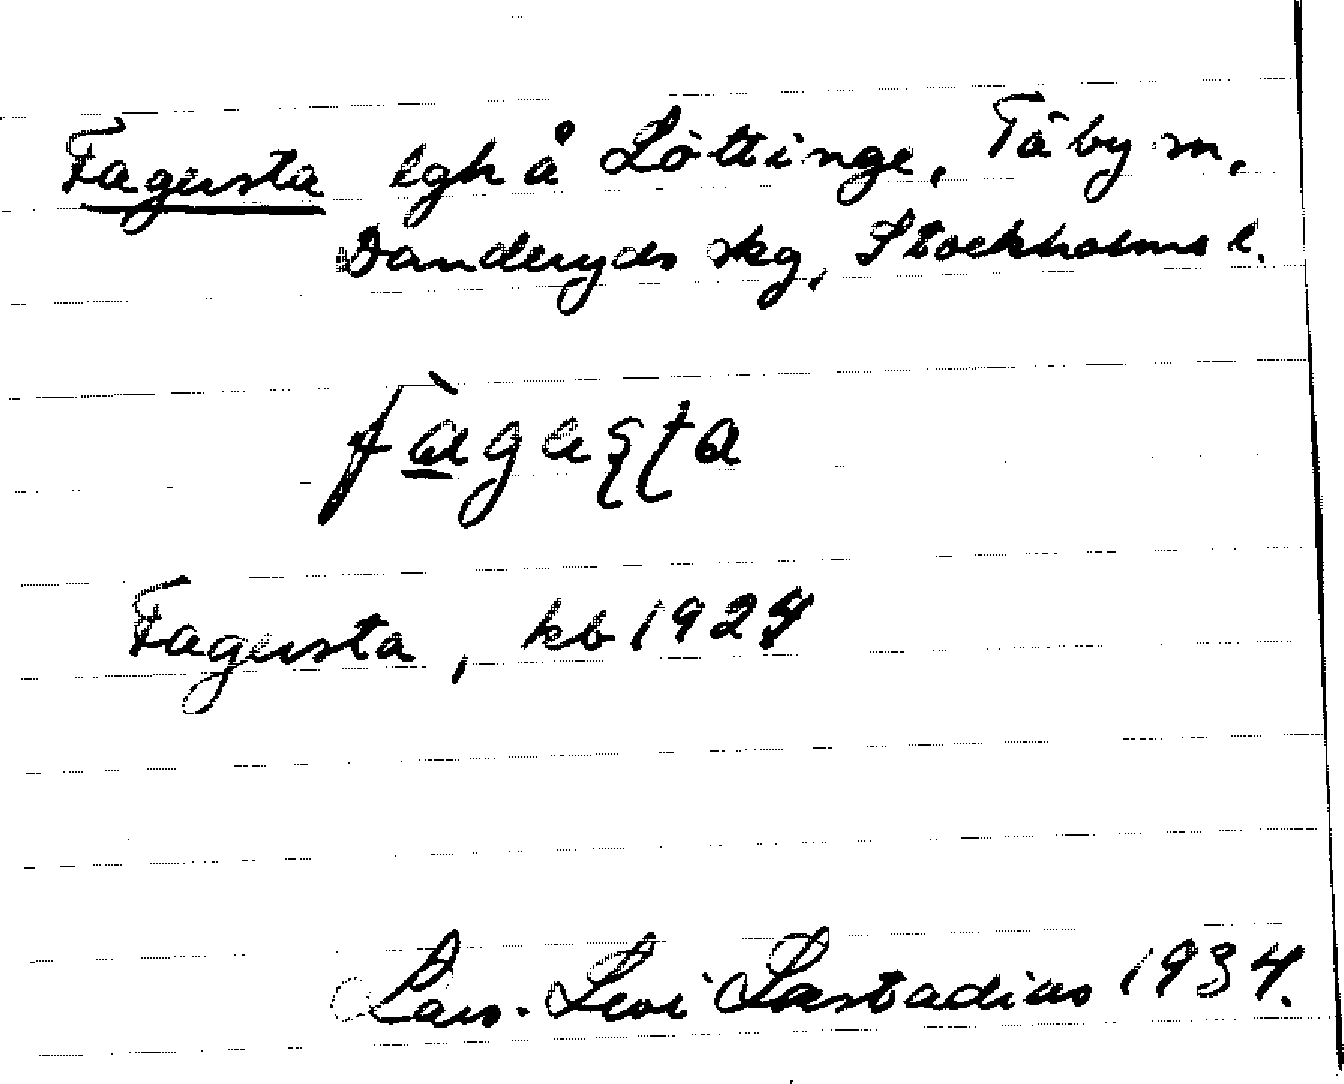 Fagersta lgh å Löttinge, Täby sn,
Danderyds skg, Stockholms l.
fàgaʂʈa
Fagersta, kb 1924
Lars-Levi Læstadius 1934.